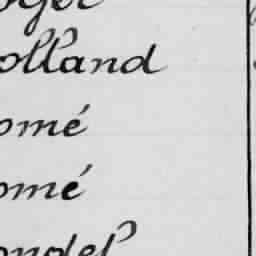 oger
olland
omé
omé
ondel